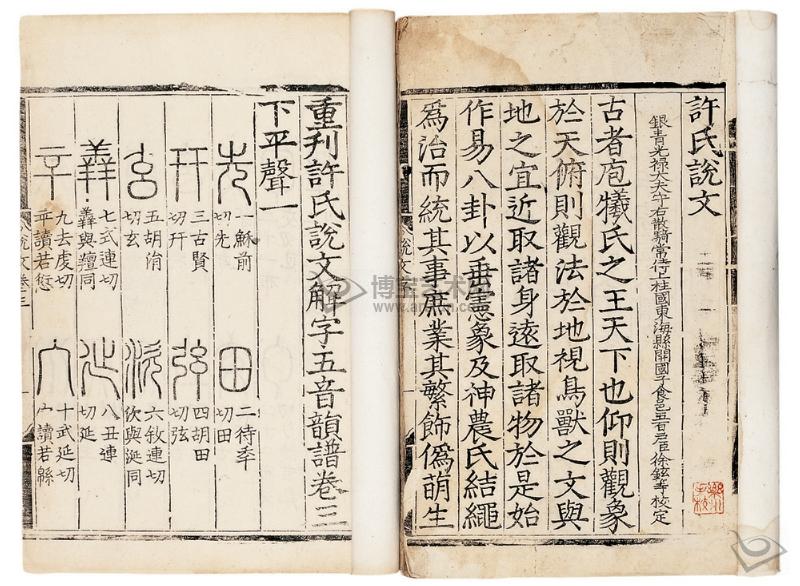 許氏說文
銀青光祿大夫守右散騎常侍上柱國東海縣開國子食邑五百戶臣徐鉉等校定
古者庖犧氏之王天下也仰則觀象
於天俯則觀法於地視鳥獸之文與
地之宜近取諸身遠取諸物於是始
作易八卦以垂憲象及神農氏結繩
爲治而統其事庶業其繁飾僞萌生
說文
重刊許氏說文解字五音韻譜卷三
下平聲一
先
一穌前
切先
田
二待秊
切田
幵
三古賢
切幵
弦
四胡田
切弦
玄
五胡涓
切玄
㳄
六敘連切
㳄與涎同
羴
七式連切
羴與羶同
延
八丑連
切延
䇂
九去虔切
䇂讀若愆
宀
十武延切
宀讀若緜
說文卷三
博宝艺术